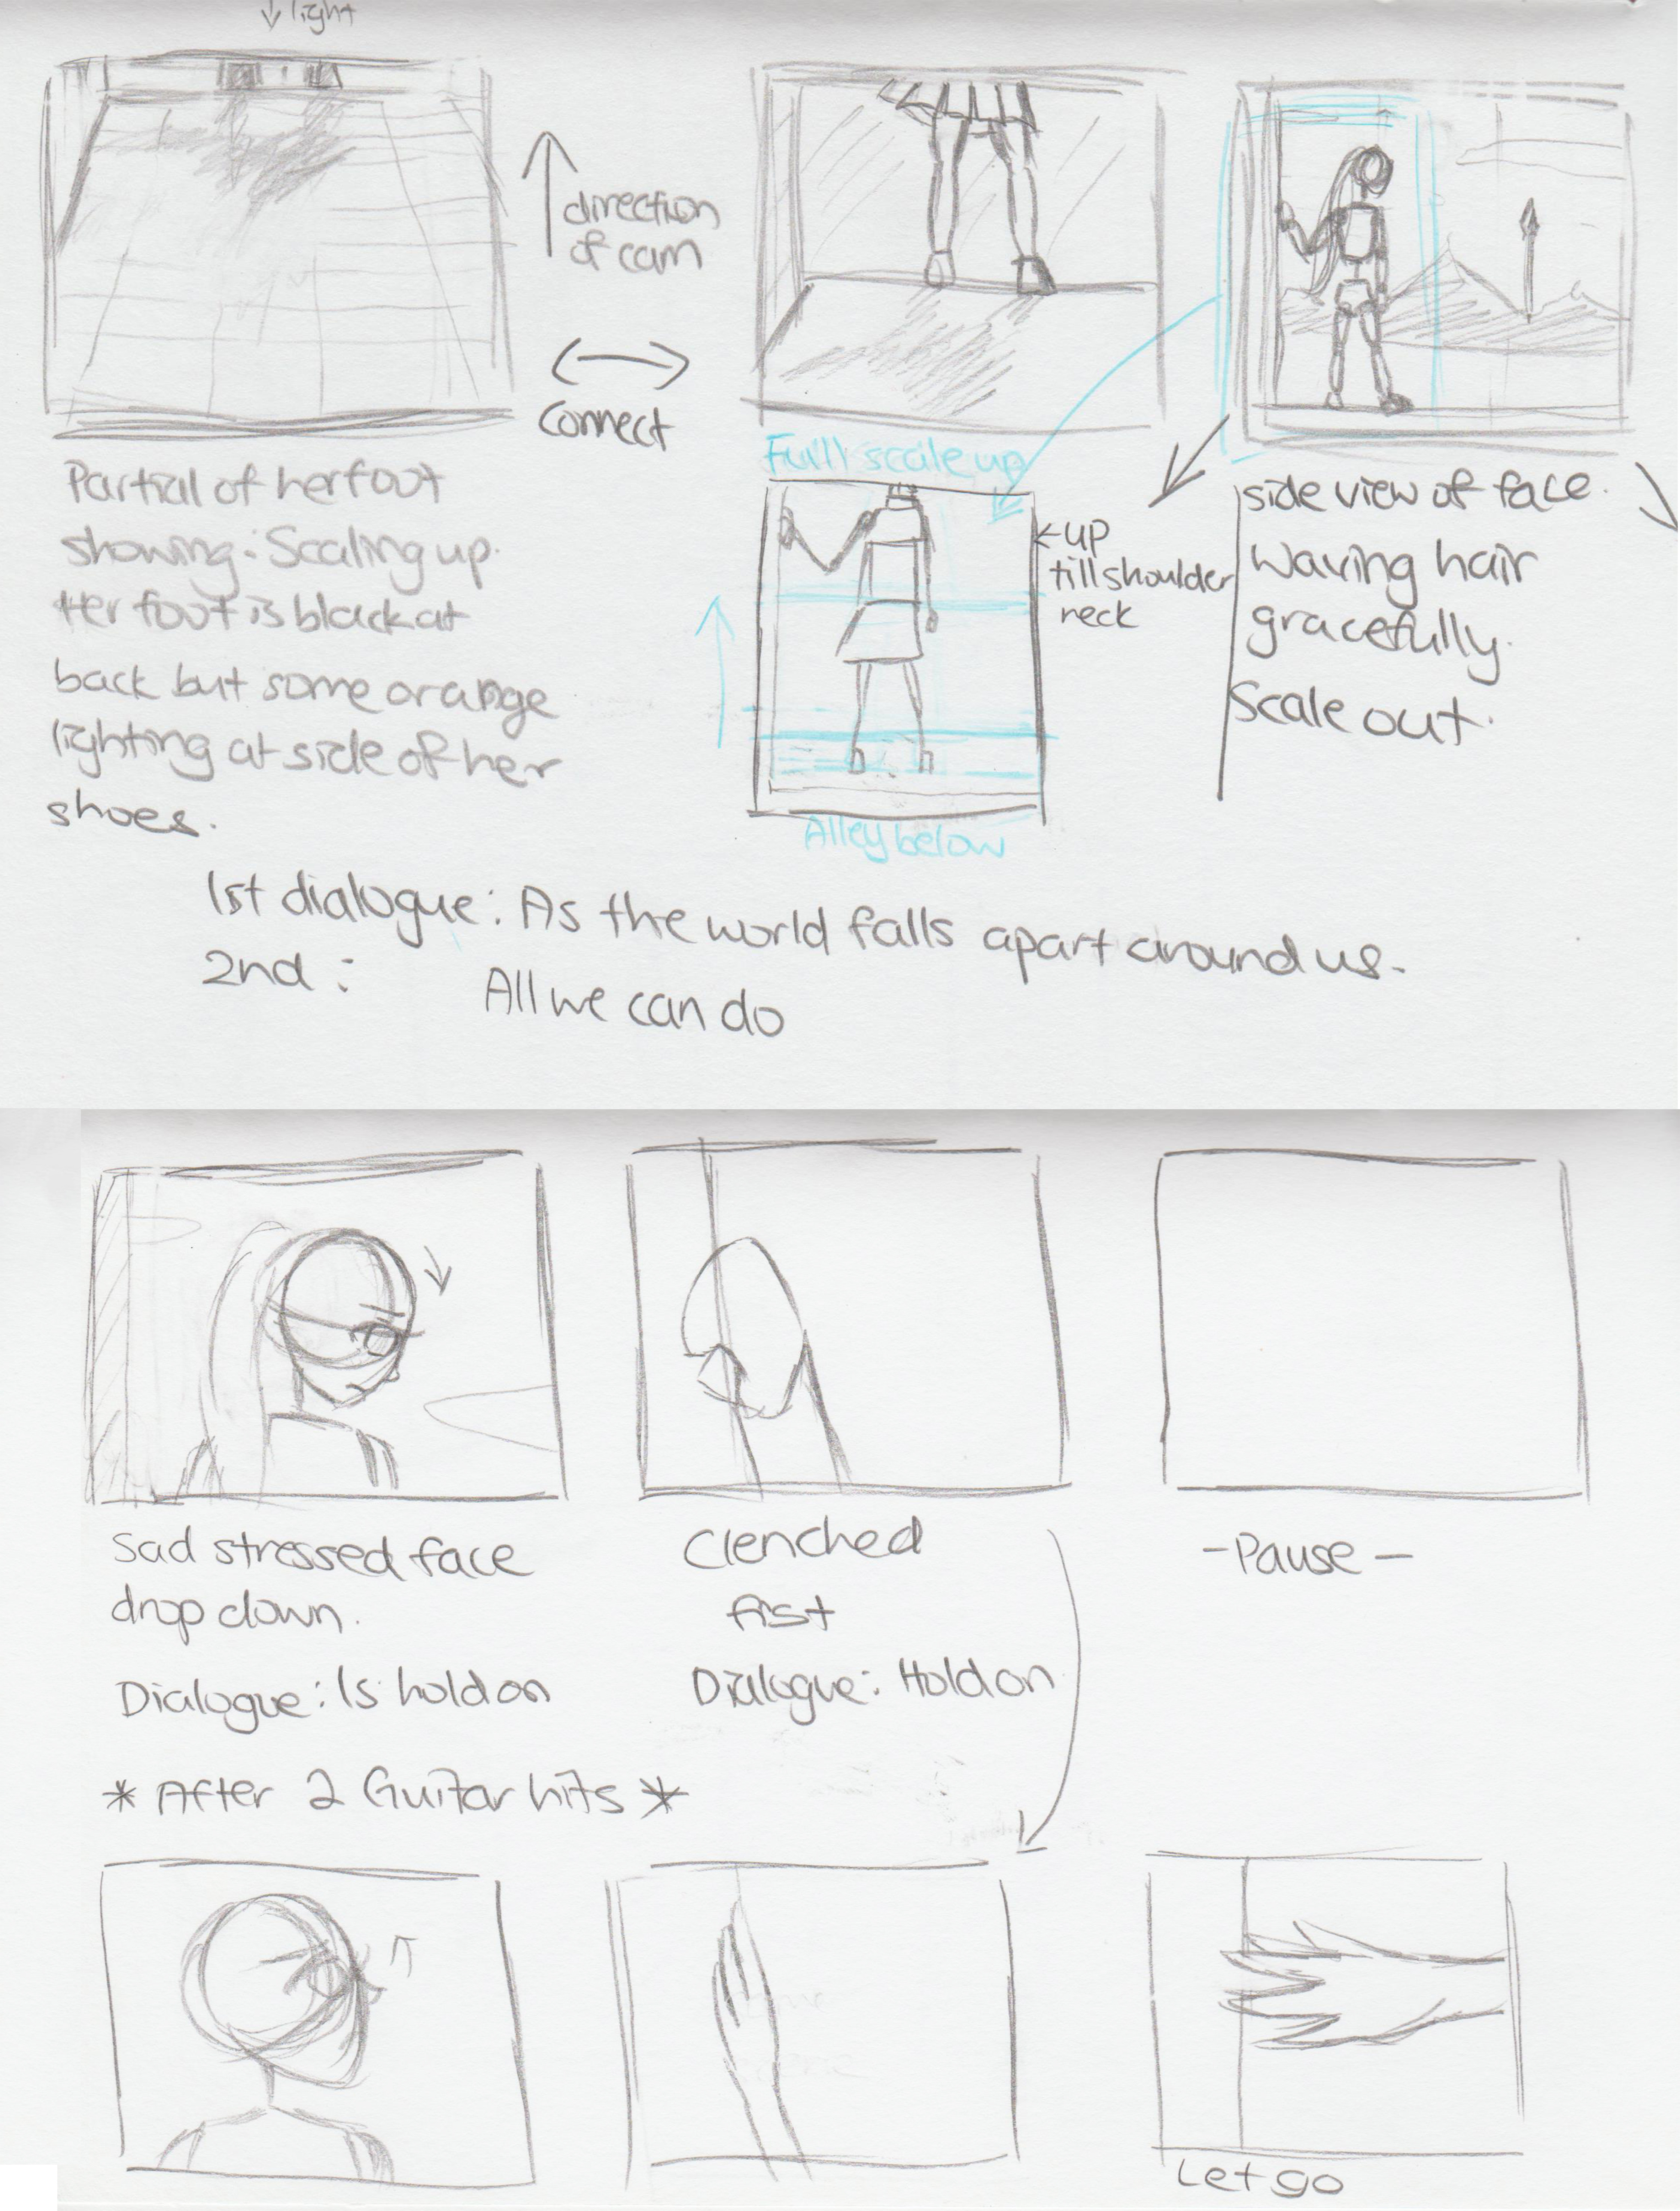 ↓ light
direction
of cam
Connect
Partial of her foot
showing: Scaling up.
Her foot is black at
back but some orange
lighting at side of her
shoes.
Full scale up
← up
till shoulder
neck
Alley below
side view of face.
Waving hair
gracefully.
Scale out.
1st dialogue: As the world falls apart around us.
2nd: All we can do
Sad stressed face
drop down.
Dialogue: Is hold on
Clenched
fist
Dialogue: Hold on
- Pause -
* After 2 Guitar hits *
Let go